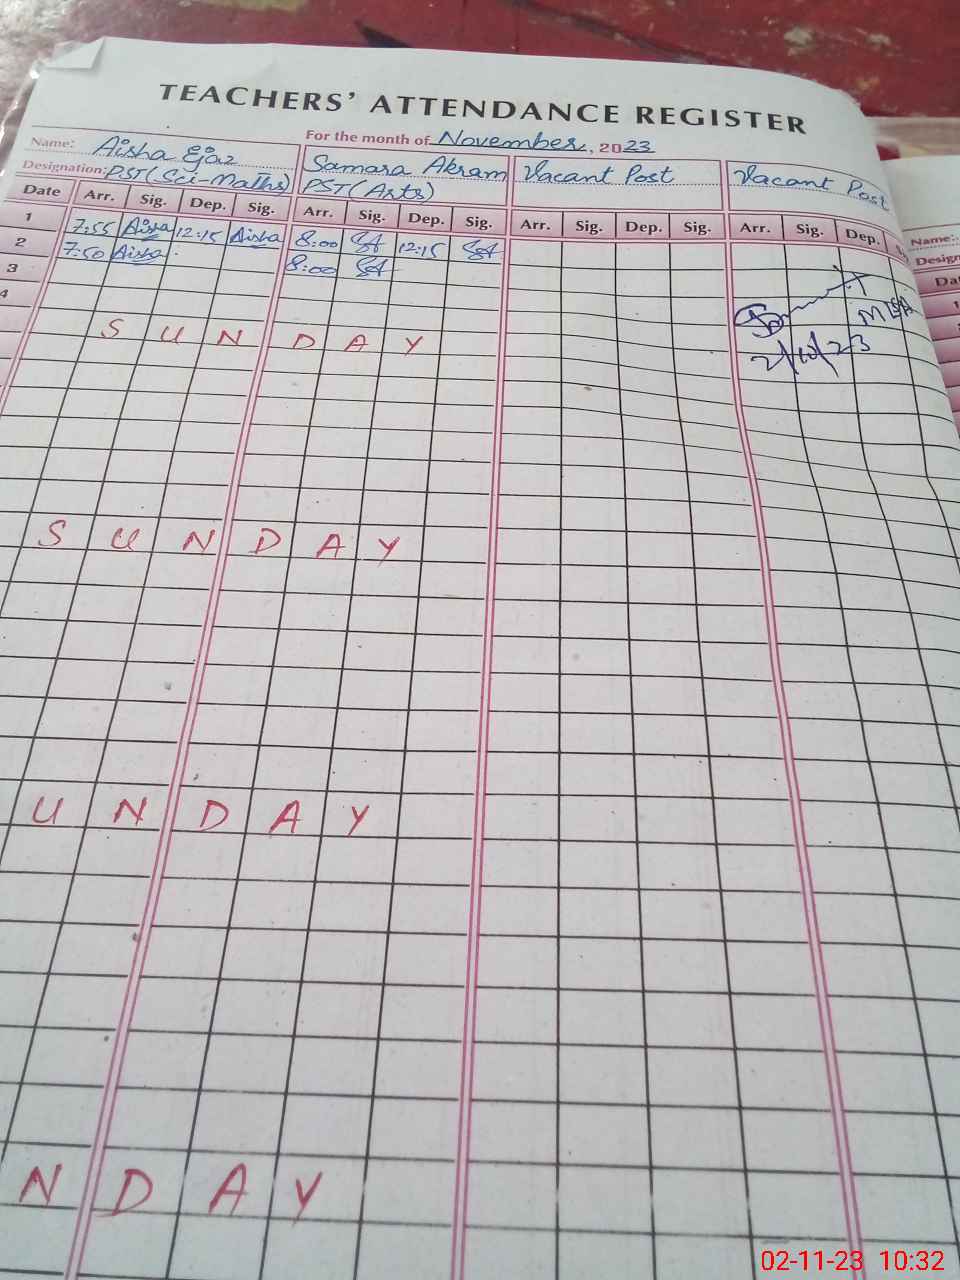 TEACHERS' ATTENDANCE REGISTER
For the month of November, 2023
Name: Aisha Ejaz Samara Akram Vacant Post Vacant Post
Designation: PST (Sci-Maths) PST (Arts)
Date Arr. Sig. Dep. Sig. Arr. Sig. Dep. Sig. Arr. Sig. Dep. Sig. Arr. Sig. Dep.
1 7:55 Aisha 12:15 Aisha 8:00 12:15
2 7:50 Aisha 8:00
3
4
MEA
2/10/23
S U N D A Y
S U N D A Y
U N D A Y
N D A Y
Name:
Design
Da
1
02-11-23 10:32